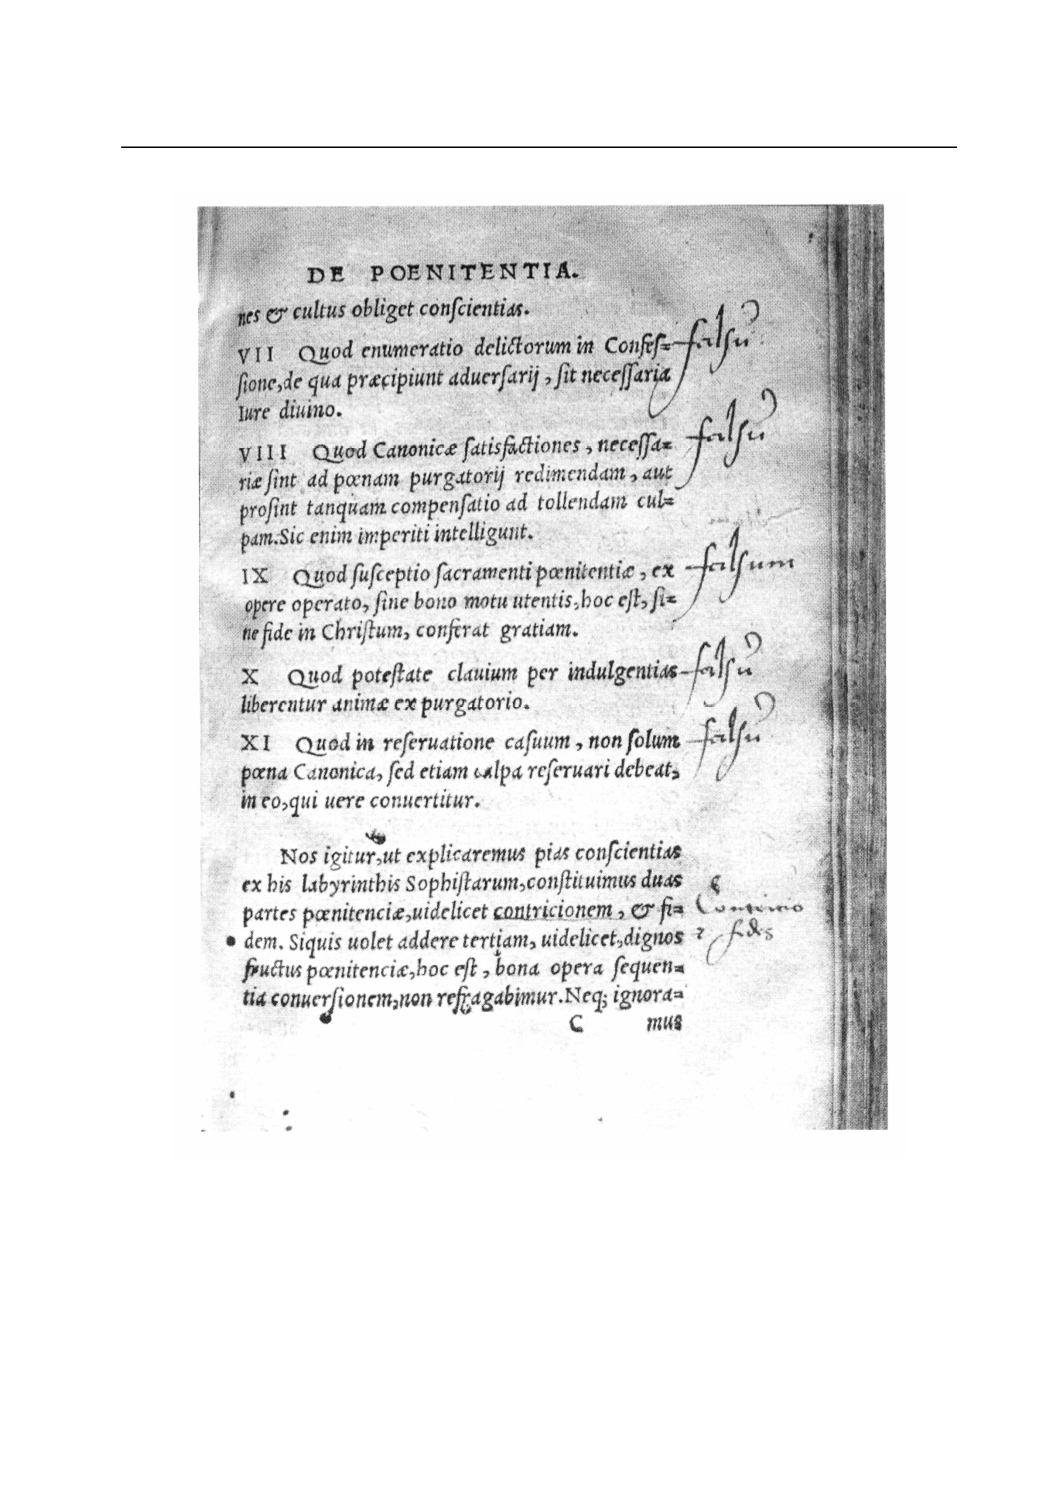 DE POENITENTIA.
nes & cultus obliget conſcientias.
VII Quod enumeratio delictorum in Confeſ= falsū
ſione, de qua præcipiunt aduerſarij, ſit neceſſaria
Iure diuino.
VIII Quod Canonicæ ſatisfactiones, neceſſa= falsū
riæ ſint ad pœnam purgatorij redimendam, aut
proſint tanquam compenſatio ad tollendam cul=
pam. Sic enim imperiti intelligunt.
IX Quod ſuſceptio ſacramenti pœnitentiæ, ex falsum
opere operato, ſine bono motu utentis, hoc eſt, ſi=
ne fide in Chriſtum, conferat gratiam.
X Quod poteſtate clauium per indulgentias falsū
liberentur animæ ex purgatorio.
XI Quod in reſeruatione caſuum, non ſolum falsū
pœna Canonica, ſed etiam culpa reſeruari debeat,
in eo, qui uere conuertitur.
Nos igitur, ut explicaremus pias conſcientias
ex his labyrinthis Sophiſtarum, conſtituimus duas
partes pœnitenciæ, uidelicet contricionem, & fi= Contricio
dem. Siquis uolet addere tertiam, uidelicet, dignos 2 fides
fructus pœnitenciæ, hoc eſt, bona opera ſequen=
tia conuerſionem, non refragabimur. Neq; ignora=
C mus